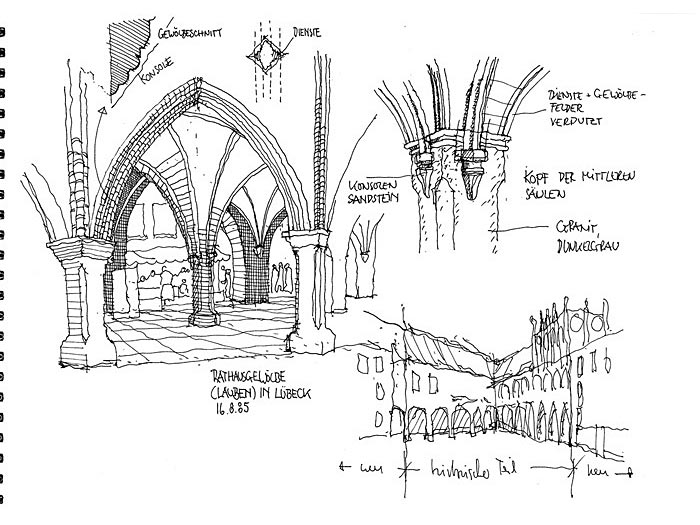 GEWÖLBESCHNITT
DIENSTE
KONSOLE
DIENSTE + GEWÖLBE-
FELDER
VERPUTZT
KONSOLEN
SANDSTEIN
KOPF DER MITTLEREN
SÄULEN
GRANIT,
DUNKELGRAU
RATHAUSGEWÖLBE
(LAUBEN) IN LÜBECK
16.8.85
neu
historischer Teil
neu